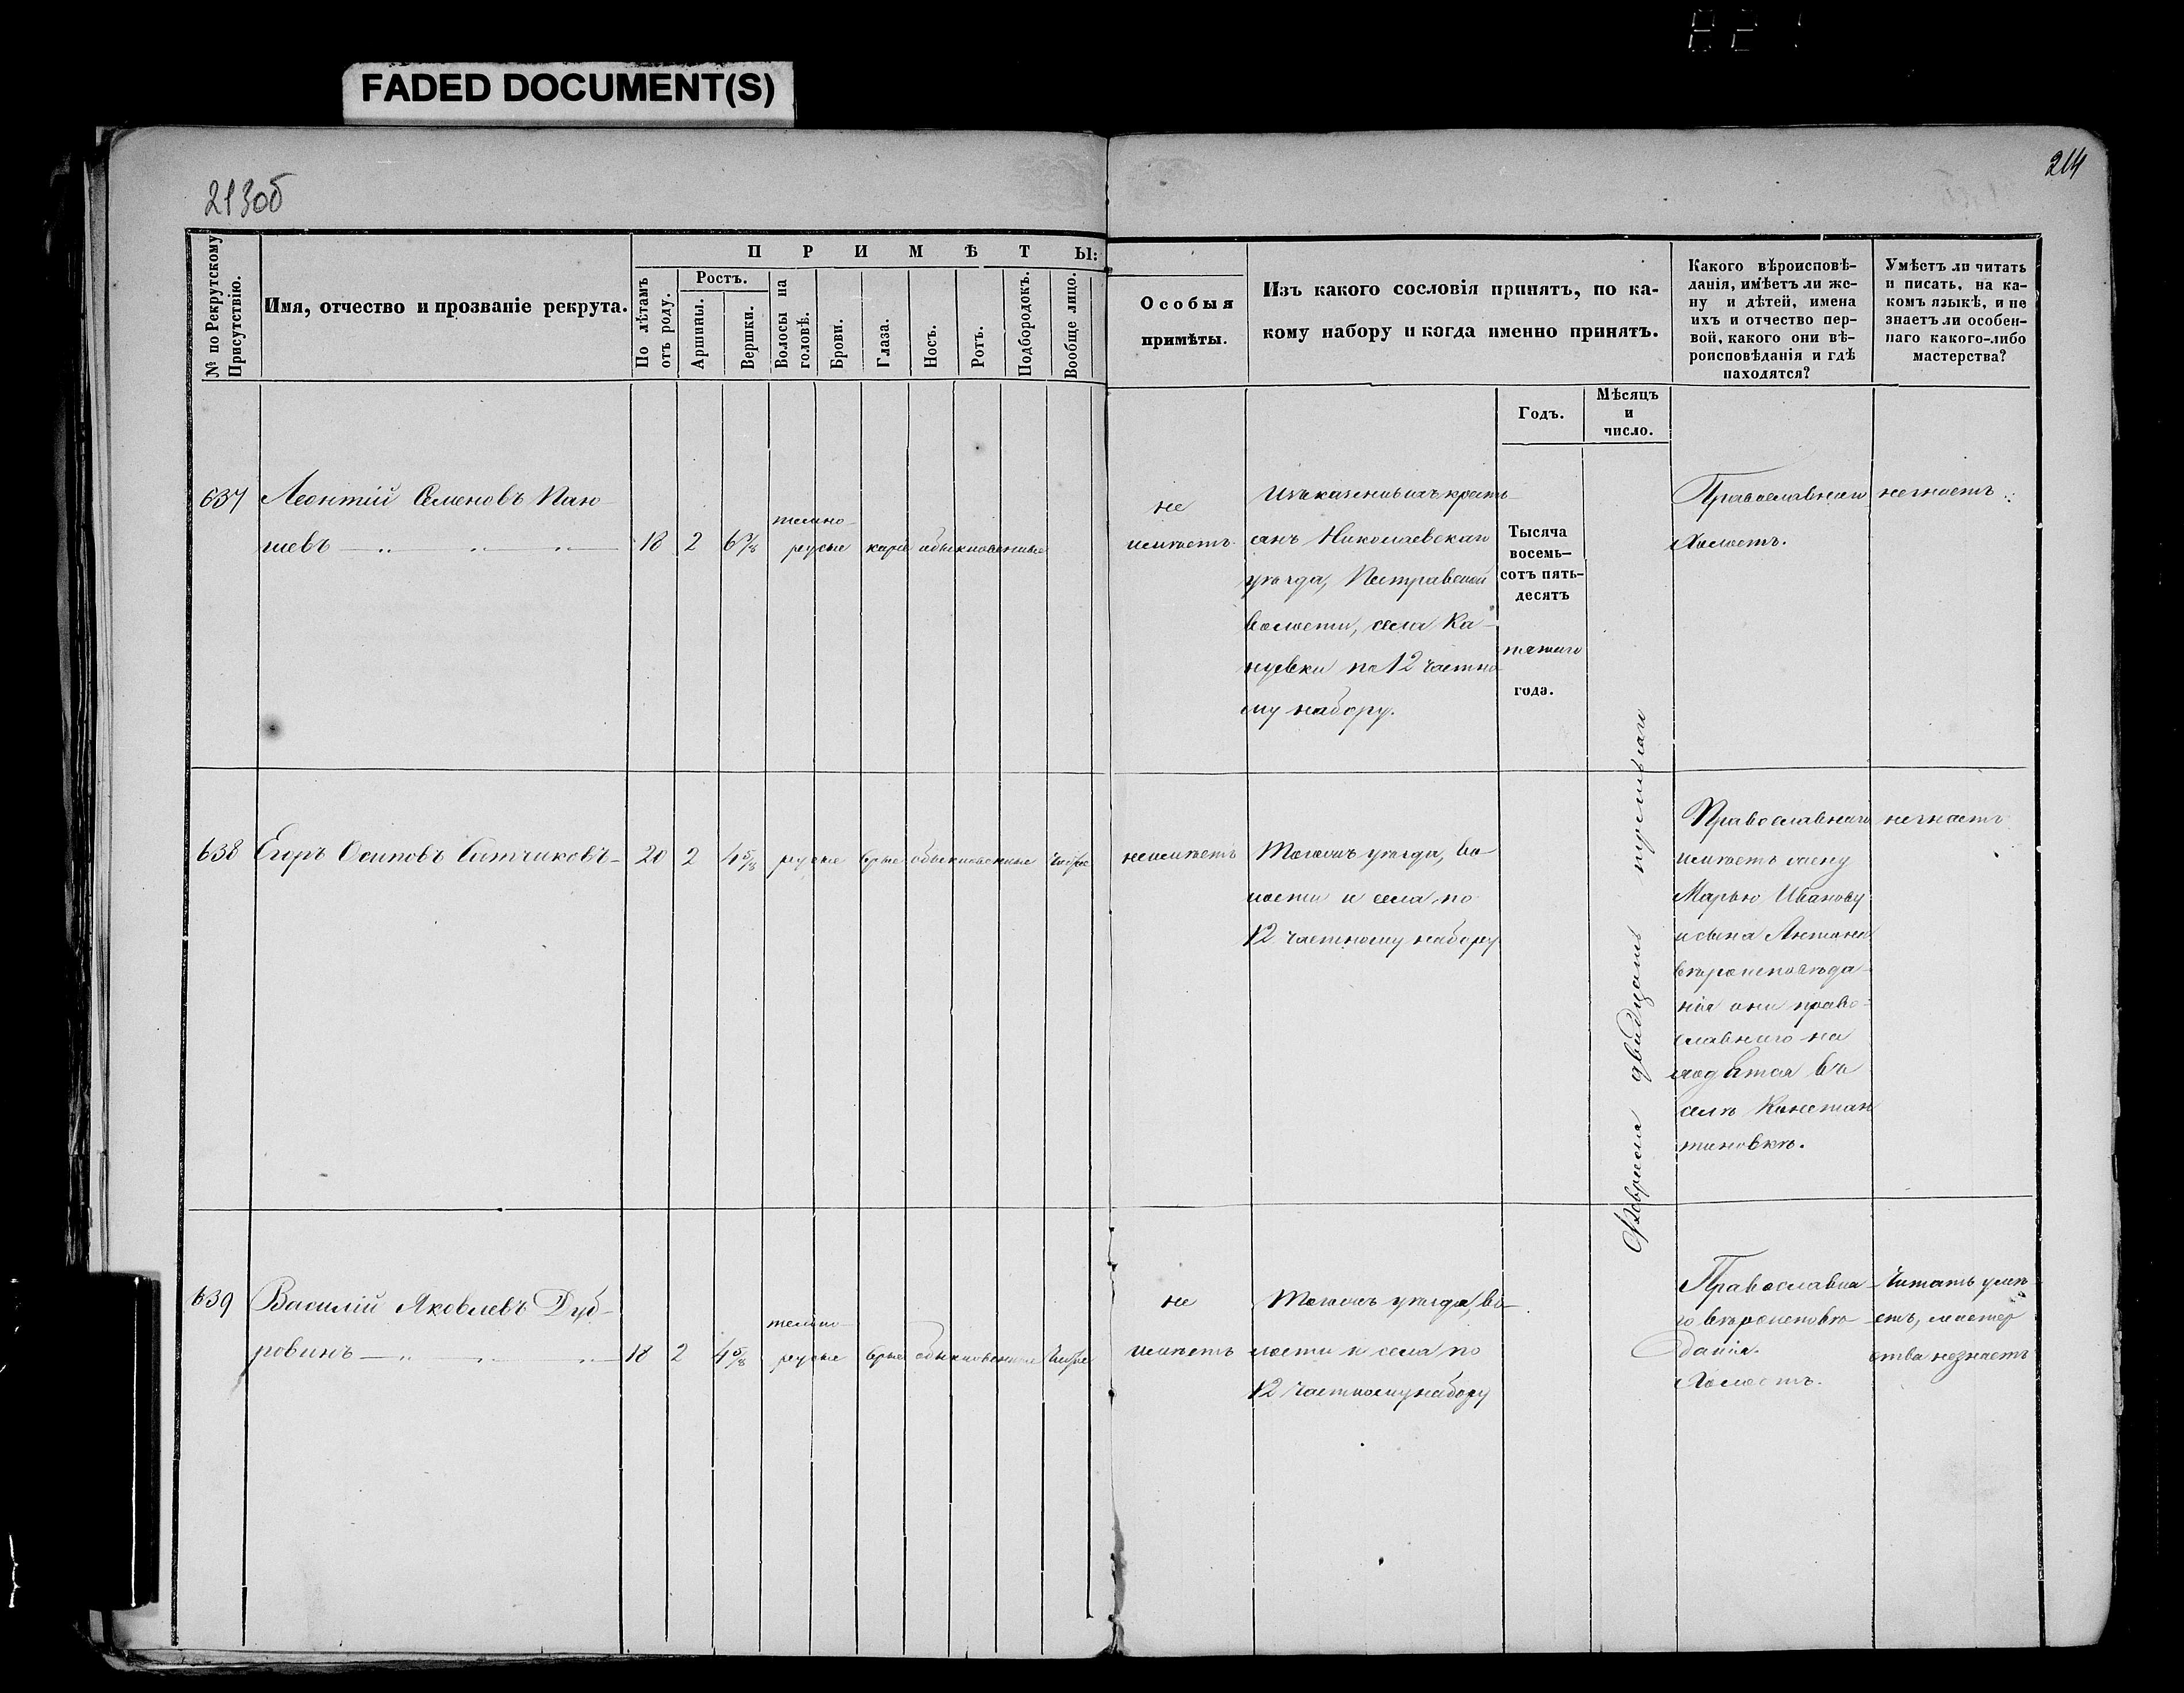 FADED DOCUMENT(S)
213об
214
№ по Рекрутскому Присутствію.
Имя, отчество и прозваніе рекрута.
ПРИМѢТЫ:
По лѣтамъ отъ роду.
Ростъ.
Аршины.
Вершки.
Волосы на головѣ.
Брови.
Глаза.
Носъ.
Ротъ.
Подбородокъ.
Вообще лицо.
Особыя
примѣты.
Изъ какого сословія принятъ, по ка-
кому набору и когда именно принятъ.
Годъ.
Мѣсяцъ
и
число.
Какого вѣроисповѣ-
данія, имѣетъ ли же-
ну и дѣтей, имена
ихъ и отчество пер-
вой, какого они вѣ-
роисповѣданія и гдѣ
находятся?
Умѣетъ ли читать
и писать, на ка-
комъ языкѣ, и не
знаетъ ли особен-
наго какого-либо
мастерства?
637
Леонтій Семеновъ Пан-
шевъ
18 2 6 7/8
темно-
русые
каріе
обыкновенные
не
имѣетъ
Изъ казенныхъ кресть-
янъ Николаевскаго
уѣзда, Пестравской
волости, села Ка-
нуевки по 12 частно-
му набору.
Тысяча
восемь-
сотъ пять-
десятъ
пятаго
года.
Февраля двадцать
Православнаго
Холостъ.
незнаетъ
638
Егоръ Осиповъ Ситчиковъ
20 2 4 5/8
русые
сѣрые
обыкновенные
чистое
неимѣетъ
Тогожъ уѣзда, во
лости и села по
12 частному набору
Православнаго
имѣетъ жену
Марью Иванову
и сына Антона
вѣроисповѣда-
нія они право-
славнаго на
ходятся въ
селѣ Констан
тиновкѣ.
незнаетъ
639
Василій Яковлевъ Дуб-
ровинъ
18 2 4 5/8
темно-
русые
сѣрые
обыкновенные
чистое
не
имѣетъ
Тогожъ уѣзда, во-
лости и села по
12 частному набору
Православна
го вѣроисповѣ
данія.
Холостъ.
Читать умѣ
етъ, мастер
ства незнаетъ